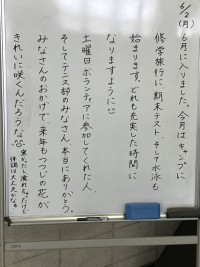 6/2(月) 6月に入りました。今月はキャンプに
修学旅行に期末テスト、そして水泳も
始まります。どれも充実した時間に
なりますように☺
土曜日ボランティアに参加してくれた人、
そしてテニス部のみなさん、本当にありがとう。
みなさんのおかげで、来年もつつじの花が
きれいに咲くんだろうな☺
寒かったし濡れちゃったけど
体調は大丈夫かな。